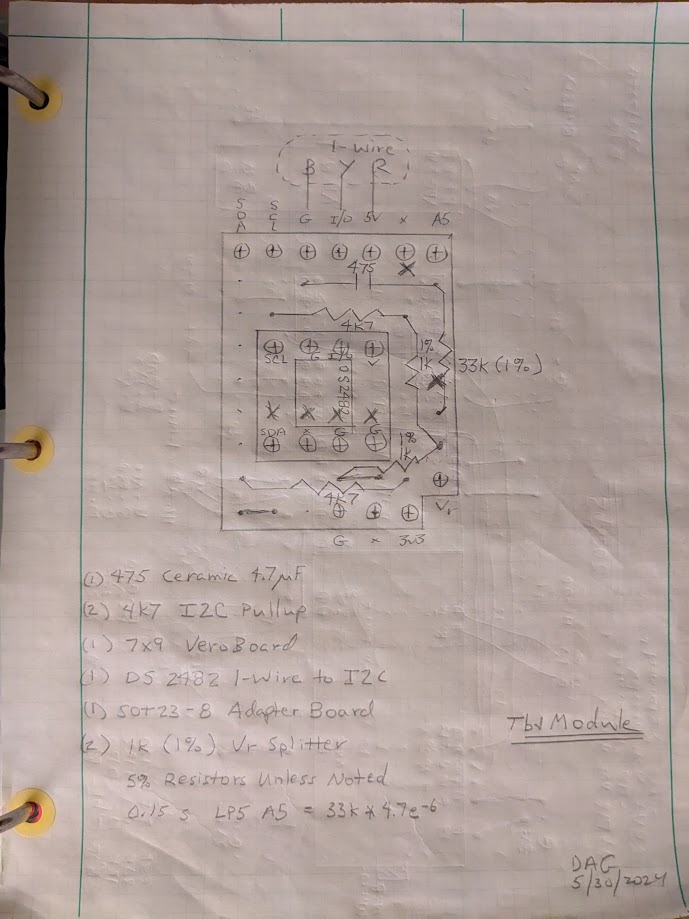 1-Wire
B Y R
SDA SCL G I/O 5V x A5
475
4K7
1% 1K
33K (1%)
SCL G I/O V
DS2482
SDA x G G
1% 1K
4K7
Vr
G x 3V3
(1) 475 Ceramic 4.7µF
(2) 4K7 I2C Pullup
(1) 7x9 VeroBoard
(1) DS 2482 1-Wire to I2C
(1) SOT23-8 Adapter Board
(2) 1K (1%) Vr Splitter
5% Resistors Unless Noted
0.15 s LP5 A5 = 33K * 4.7e-6
Module
DAG
5/30/2024